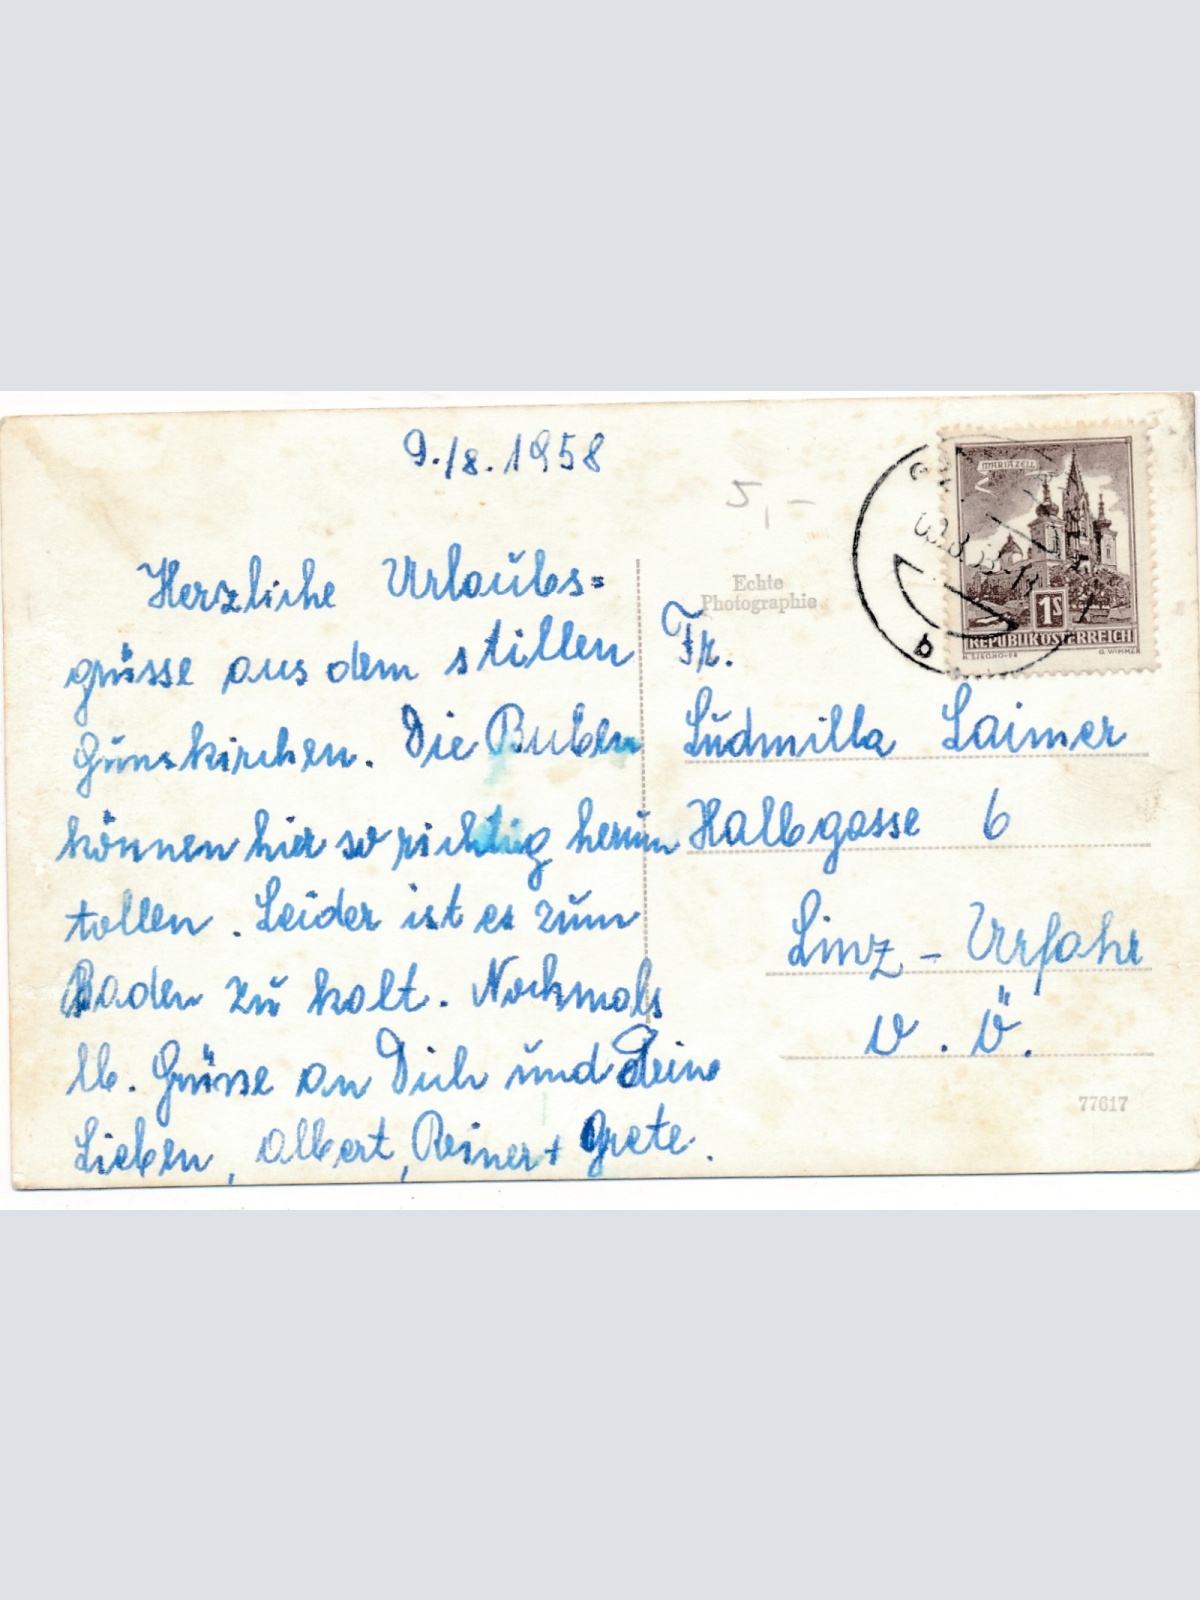 9./8. 1958
Herzliche Urlaubs=
grüsse aus dem stillen
Gunskirchen. Die Buben
können hier so richtig herum
tollen. Leider ist es zum
Baden zu kalt. Nochmals
lb. Grüsse an Dich und Deine
Lieben, Albert, Reiner + Grete.
5,-
Echte
Photographie
Fr.
Ludmilla Laimer
Halbgasse 6
Linz - Urfahr
O. Ö.
77617
MARIAZELL
1S
REPUBLIK ÖSTERREICH
G. WIMMER
b